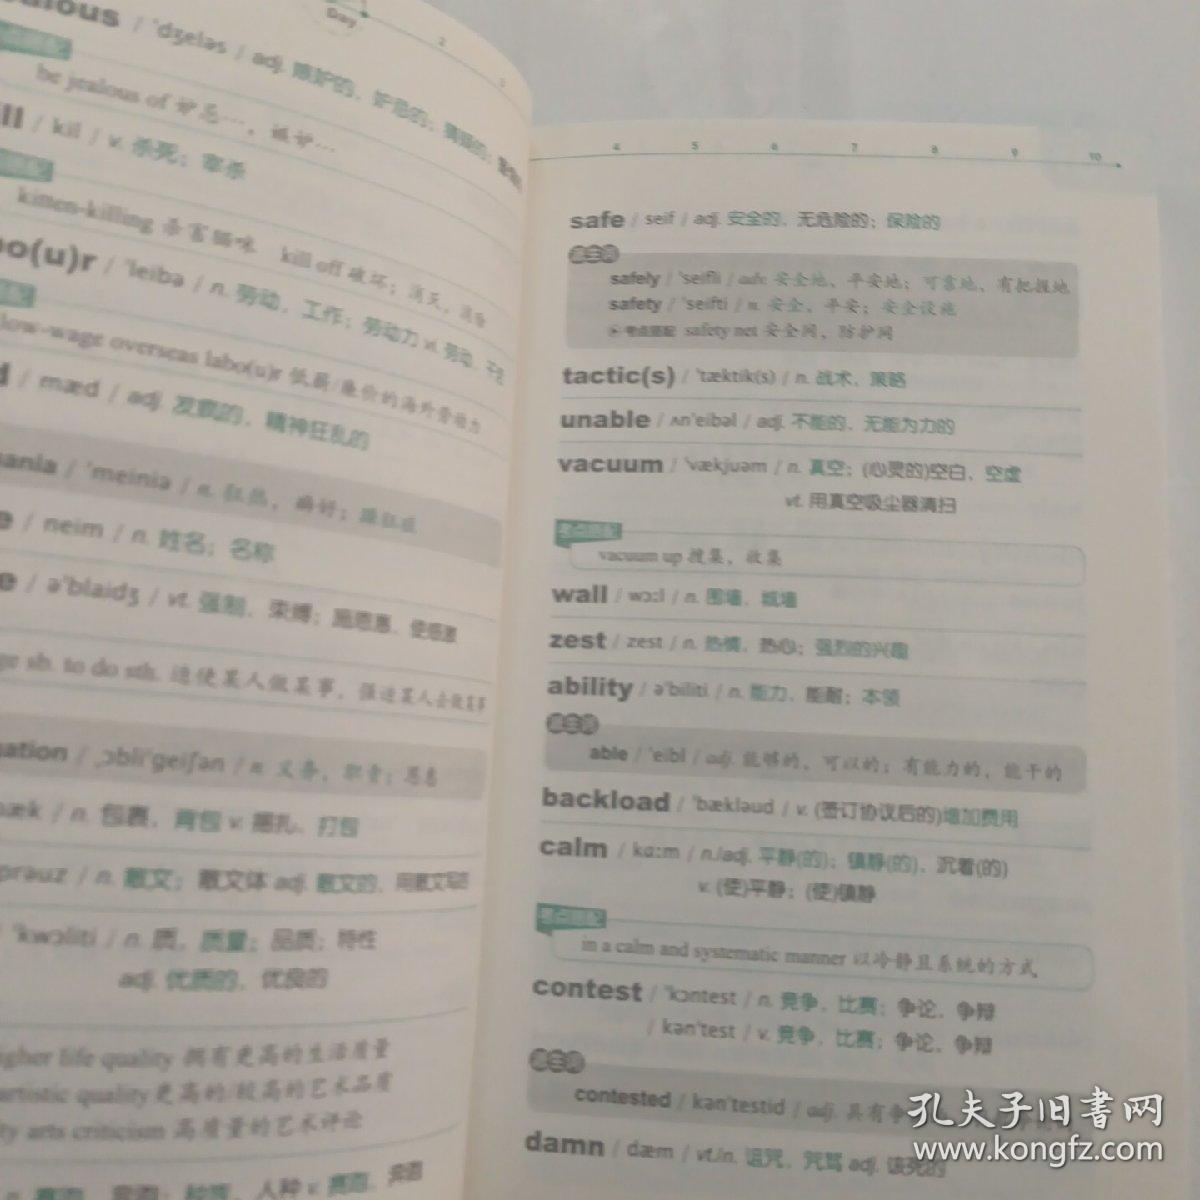 Day
2
3
/ 'dʒeləs / adj. 嫉妒的，妒忌的；
be jealous of 妒忌…，嫉妒…
/ kil / v. 杀死；宰杀
kitten-killing 杀害猫咪 kill off 破坏；消灭，
bo(u)r / 'leibə / n. 劳动，工作；劳动力 vi. 劳动，干活
low-wage overseas labo(u)r 低薪/廉价的海外劳动力
/ mæd / adj. 发疯的，精神狂乱的
ania / 'meiniə / n. 狂热，癖好；躁狂症
/ neim / n. 姓名；名称
/ ə'blaidʒ / vt. 强制，束缚；施恩惠，使感激
ge sb. to do sth. 迫使某人做某事，强迫某人去做某事
ation / ˌɔbli'geiʃən / n. 义务，职责；恩惠
pæk / n. 包裹，背包 v. 捆扎，打包
prəuz / n. 散文；散文体 adj. 散文的，用散文写的
'kwɔliti / n. 质，质量；品质；特性
adj. 优质的，优良的
igher life quality 拥有更高的生活质量
artistic quality 更高的/较高的艺术品质
ty arts criticism 高质量的艺术评论
人种 v. 赛跑，奔跑
4 5 6 7 8 9 10
safe / seif / adj. 安全的，无危险的；保险的
派生词
safely / 'seifli / adv. 安全地，平安地；可靠地，有把握地
safety / 'seifti / n. 安全，平安；安全设施
考点搭配 safety net 安全网，防护网
tactic(s) / 'tæktik(s) / n. 战术，策略
unable / ʌn'eibəl / adj. 不能的，无能为力的
vacuum / 'vækjuəm / n. 真空；(心灵的)空白，空虚
vt. 用真空吸尘器清扫
考点搭配
vacuum up 搜集，收集
wall / wɔːl / n. 围墙，城墙
zest / zest / n. 热情，热心；强烈的兴趣
ability / ə'biliti / n. 能力，能耐；本领
派生词
able / 'eibl / adj. 能够的，可以的；有能力的，能干的
backload / 'bækləud / v. (签订协议后的)增加费用
calm / kɑːm / n./adj. 平静(的)；镇静(的)，沉着(的)
v. (使)平静；(使)镇静
考点搭配
in a calm and systematic manner 以冷静且系统的方式
contest / 'kɔntest / n. 竞争，比赛；争论，争辩
/ kən'test / v. 竞争，比赛；争论，争辩
派生词
contested / kən'testid / adj. 具有争
damn / dæm / vt./n. 诅咒，咒骂 adj. 该死的
孔夫子旧书网
www.kongfz.com